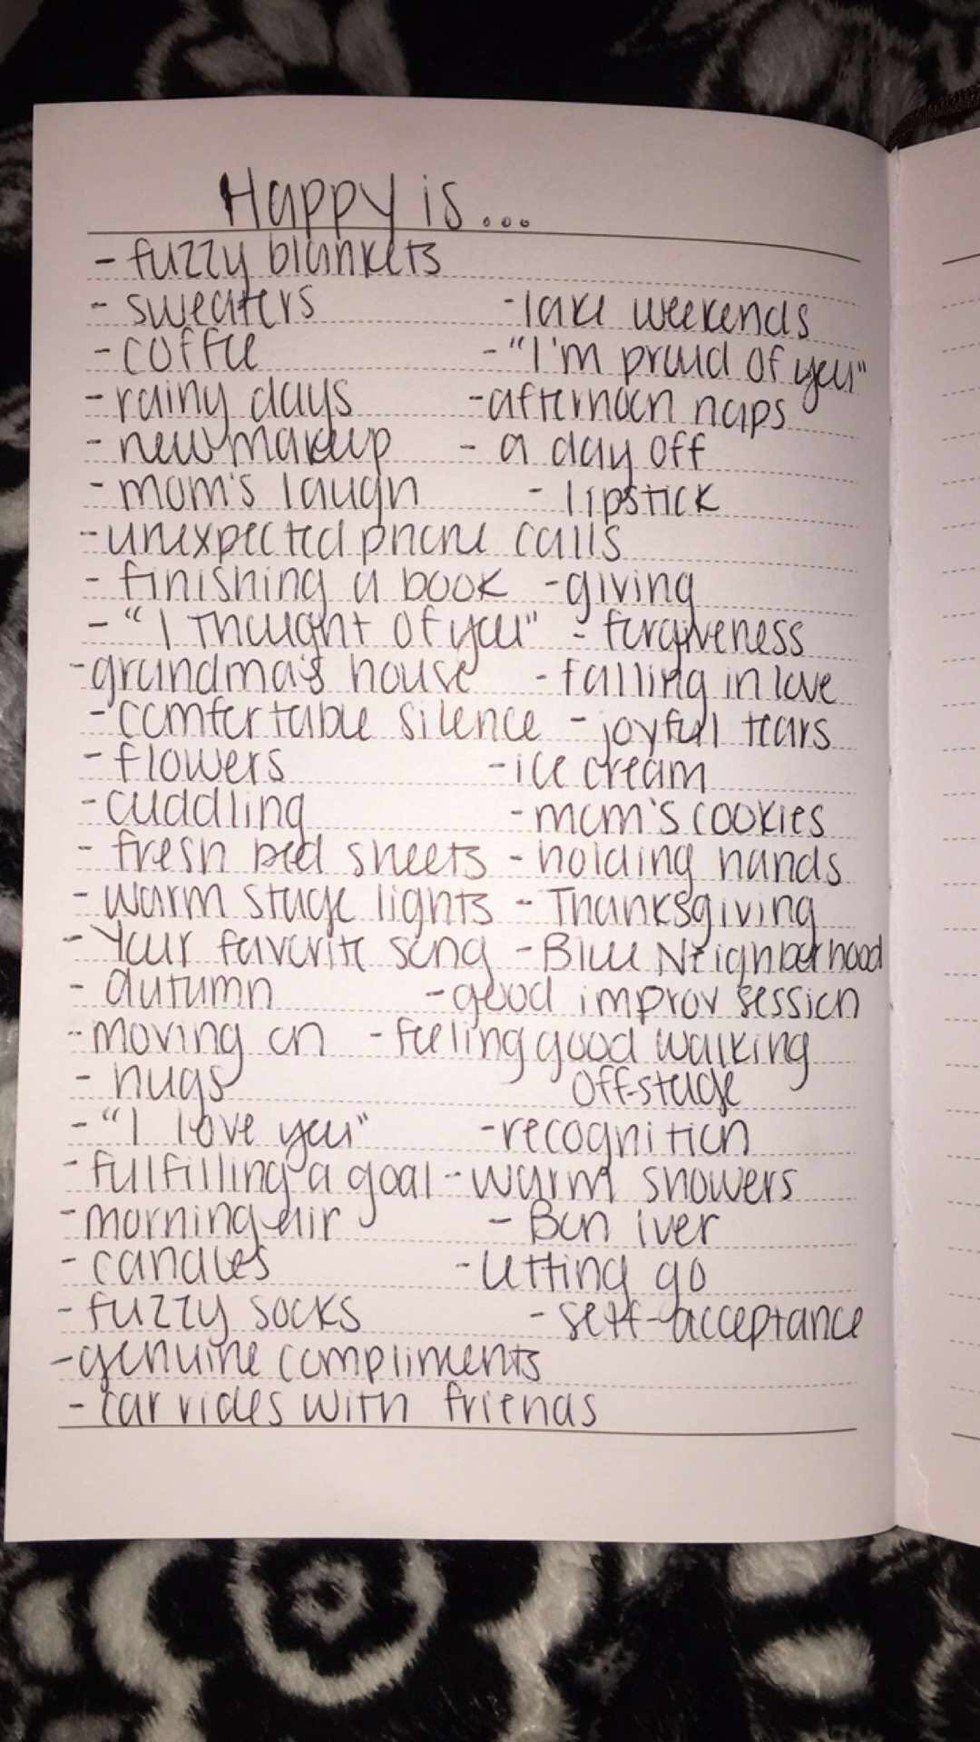 Happy is...
- fuzzy blankets
- sweaters - lake weekends
- coffee - "I'm proud of you"
- rainy days - afternoon naps
- new makeup - a day off
- mom's laugh - lipstick
- unexpected phone calls
- finishing a book - giving
- "I thought of you" - forgiveness
- grandma's house - falling in love
- comfortable silence - joyful tears
- flowers - ice cream
- cuddling - mom's cookies
- fresh bed sheets - holding hands
- warm stage lights - Thanksgiving
- Your favorite song - Blue Neighborhood
- autumn - good improv session
- moving on - feeling good walking
- hugs off-stage
- "I love you" - recognition
- fulfilling a goal - warm showers
- morning air - Bon iver
- candles - letting go
- fuzzy socks - self-acceptance
- genuine compliments
- car rides with friends